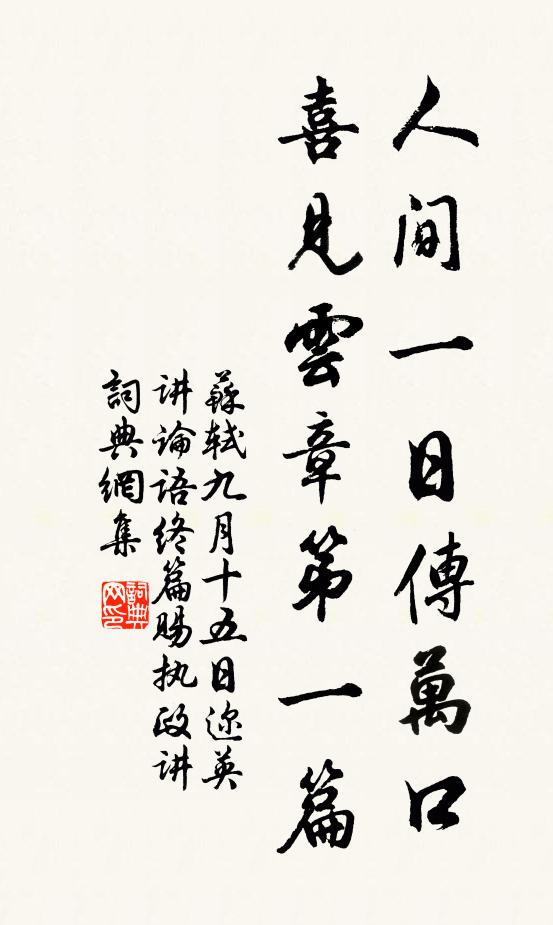 人間一日傳萬口
喜見雲章第一篇
蘇軾九月十五日迩英
讲論語终篇賜执政讲
詞典網集
詞典网印